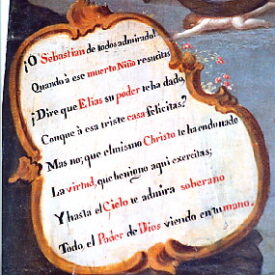 ¡O Sebastian de todos admirado!
Quando à ese muerto Niño resucitas
¡Dire que Elias su poder te ha dado,
Conque à esa triste casa felicitas?
Mas no; que el mismo Christo te ha endonado
La virtud, que benigno aqui exercitas;
Y hasta el Cielo te admira soberano
Todo el Poder de Dios viendo en tu mano.